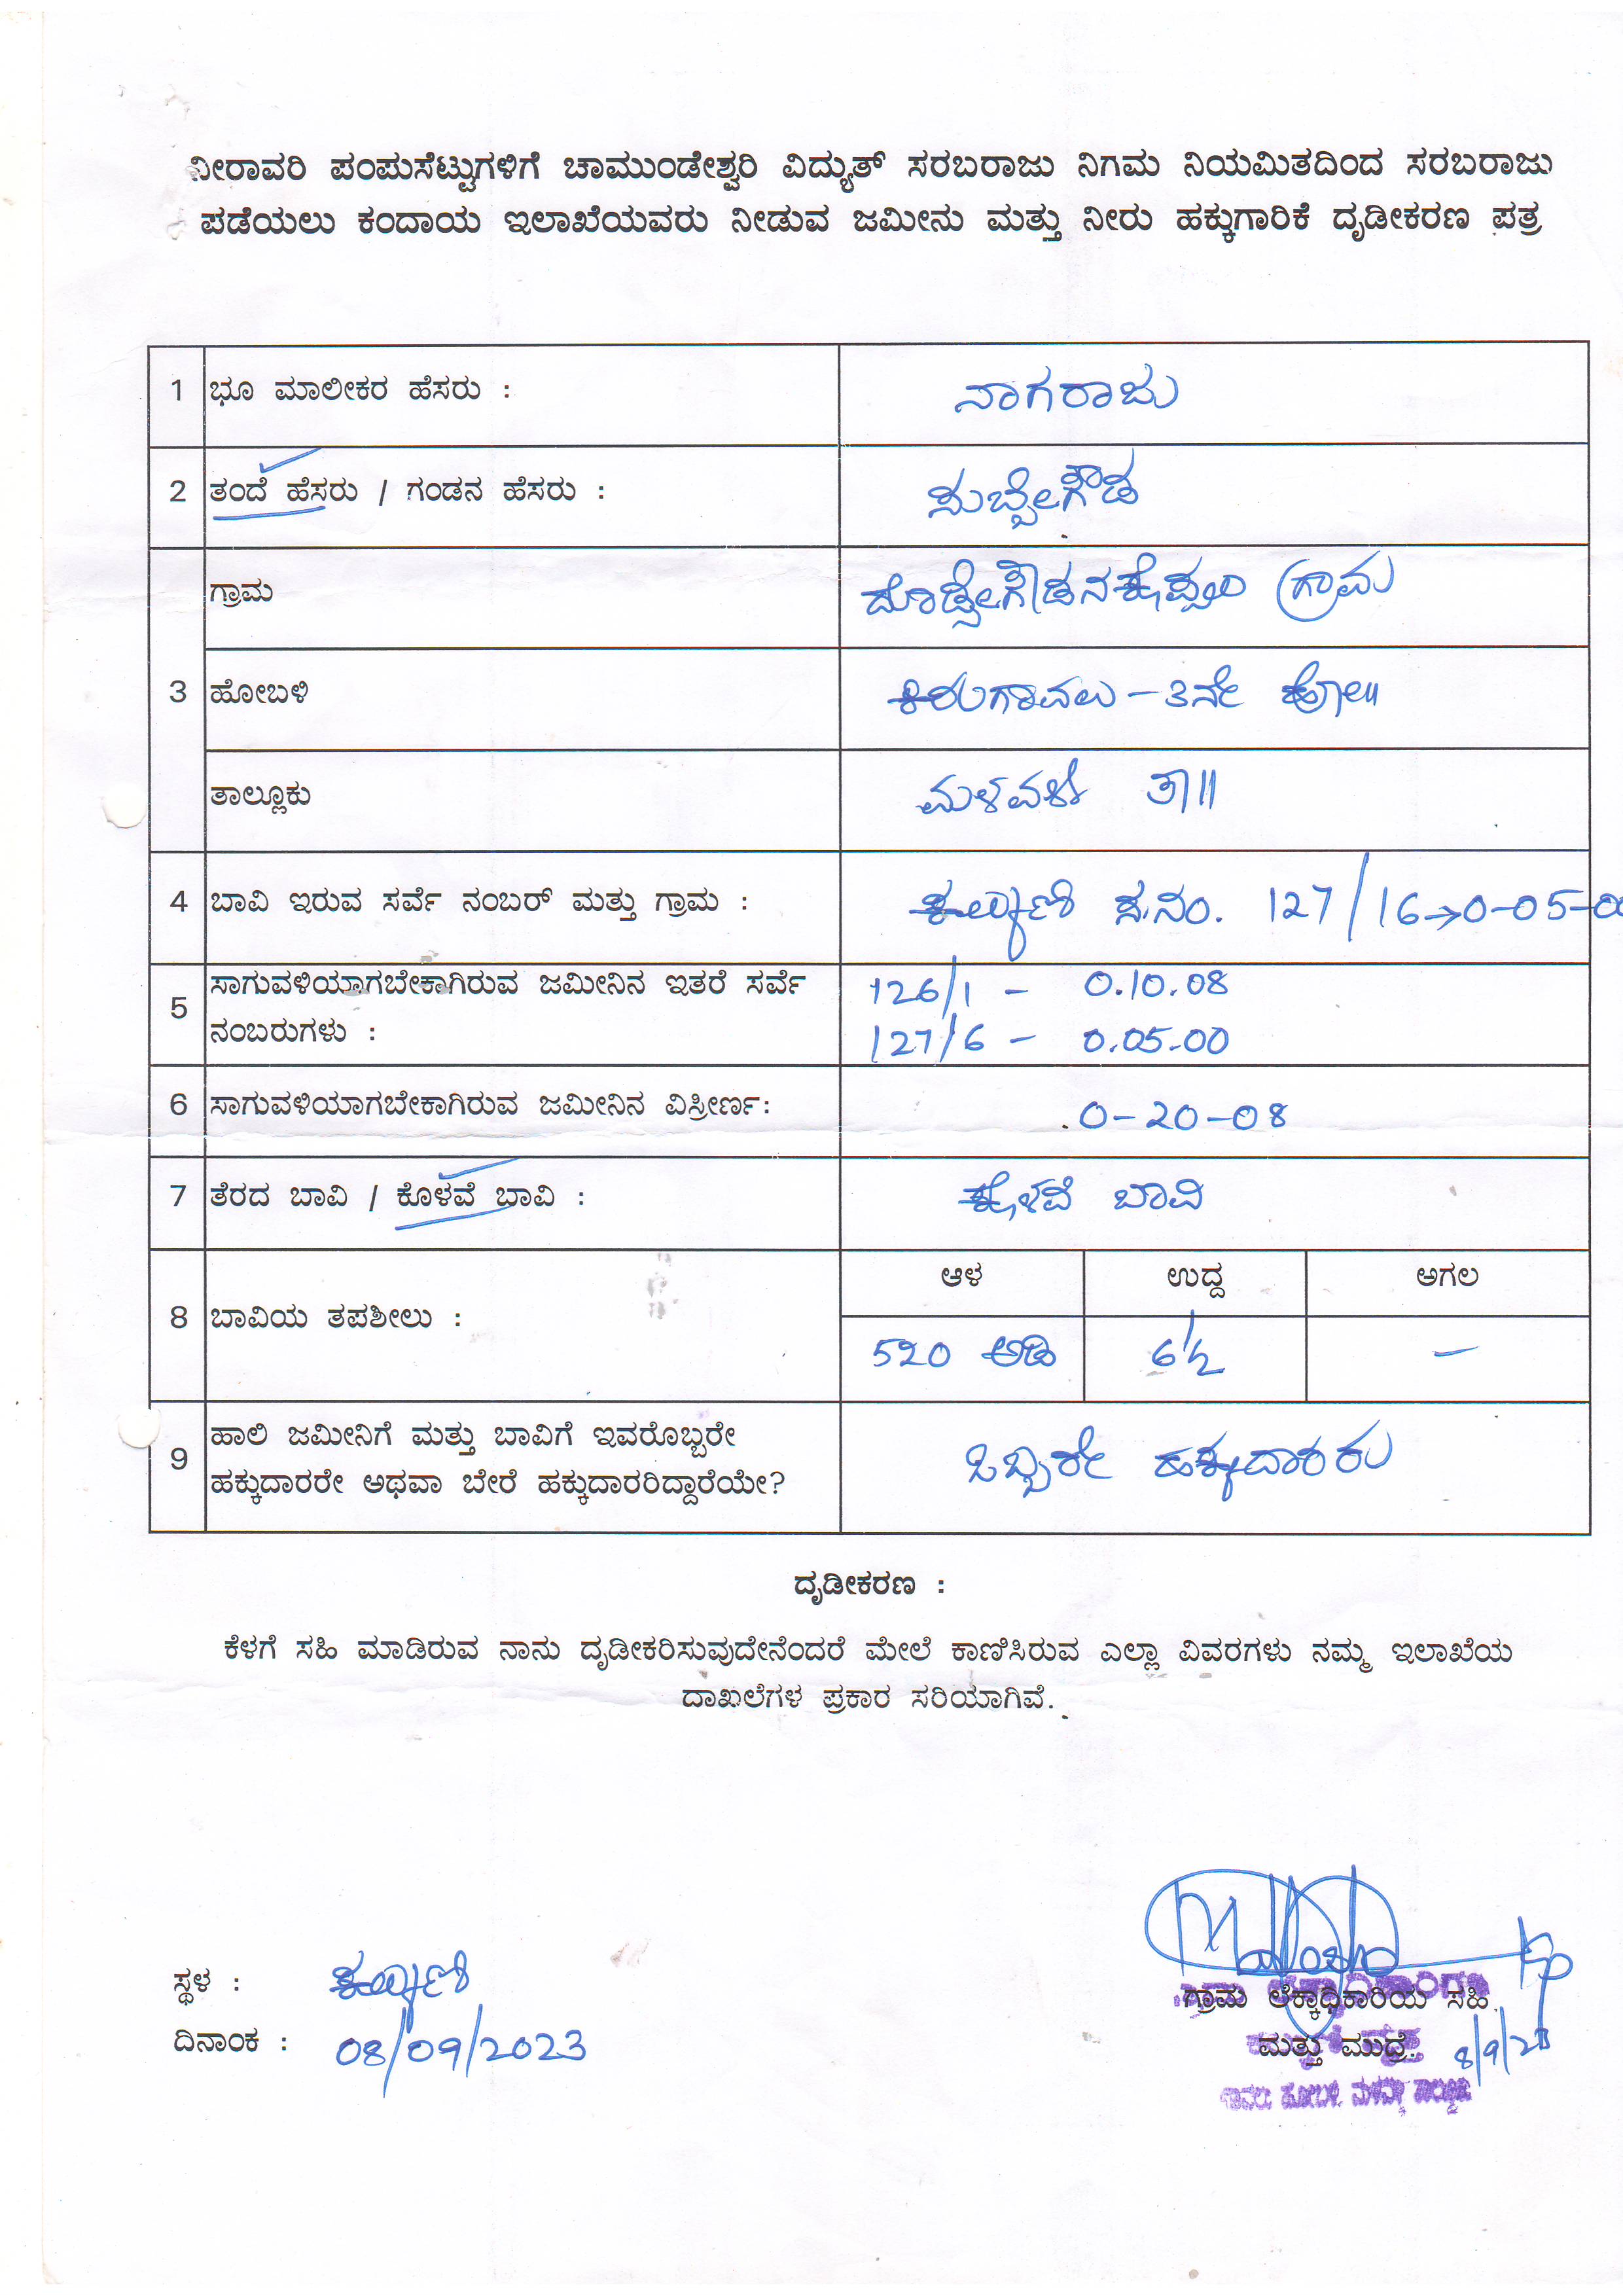 ನೀರಾವರಿ ಪಂಪುಸೆಟ್ಟುಗಳಿಗೆ ಚಾಮುಂಡೇಶ್ವರಿ ವಿದ್ಯುತ್ ಸರಬರಾಜು ನಿಗಮ ನಿಯಮಿತದಿಂದ ಸರಬರಾಜು
ಪಡೆಯಲು ಕಂದಾಯ ಇಲಾಖೆಯವರು ನೀಡುವ ಜಮೀನು ಮತ್ತು ನೀರು ಹಕ್ಕುಗಾರಿಕೆ ದೃಡೀಕರಣ ಪತ್ರ
1 ಭೂ ಮಾಲೀಕರ ಹೆಸರು : ನಾಗರಾಜು
2 ತಂದೆ ಹೆಸರು / ಗಂಡನ ಹೆಸರು : ಸುಬ್ಬೇಗೌಡ
ಗ್ರಾಮ ದೊಡ್ಡೇಗೌಡನಕೊಪ್ಪಲು ಗ್ರಾಮ
3 ಹೋಬಳಿ ಕಿರುಗಾವಲು – 3ನೇ ಹೋ॥
ತಾಲ್ಲೂಕು ಮಳವಳ್ಳಿ ತಾ॥
4 ಬಾವಿ ಇರುವ ಸರ್ವೆ ನಂಬರ್ ಮತ್ತು ಗ್ರಾಮ : ಕಲ್ಕುಣಿ ಸ.ನಂ. 127/16→0-05-00
5 ಸಾಗುವಳಿಯಾಗಬೇಕಾಗಿರುವ ಜಮೀನಿನ ಇತರೆ ಸರ್ವೆ 126/1 – 0.10.08
ನಂಬರುಗಳು : 127/6 – 0.05-00
6 ಸಾಗುವಳಿಯಾಗಬೇಕಾಗಿರುವ ಜಮೀನಿನ ವಿಸ್ತೀರ್ಣ: 0-20-08
7 ತೆರದ ಬಾವಿ / ಕೊಳವೆ ಬಾವಿ : ಕೊಳವೆ ಬಾವಿ
ಆಳ ಉದ್ದ ಅಗಲ
8 ಬಾವಿಯ ತಪಶೀಲು :
520 ಅಡಿ 6½ –
9 ಹಾಲಿ ಜಮೀನಿಗೆ ಮತ್ತು ಬಾವಿಗೆ ಇವರೊಬ್ಬರೇ
ಹಕ್ಕುದಾರರೇ ಅಥವಾ ಬೇರೆ ಹಕ್ಕುದಾರರಿದ್ದಾರೆಯೇ? ಒಬ್ಬರೇ ಹಕ್ಕುದಾರರು
ದೃಡೀಕರಣ :
ಕೆಳಗೆ ಸಹಿ ಮಾಡಿರುವ ನಾನು ದೃಡೀಕರಿಸುವುದೇನೆಂದರೆ ಮೇಲೆ ಕಾಣಿಸಿರುವ ಎಲ್ಲಾ ವಿವರಗಳು ನಮ್ಮ ಇಲಾಖೆಯ
ದಾಖಲೆಗಳ ಪ್ರಕಾರ ಸರಿಯಾಗಿವೆ.
ಸ್ಥಳ : ಕಲ್ಕುಣಿ
ಗ್ರಾಮ ಲೆಕ್ಕಾಧಿಕಾರಿಯ ಸಹಿ
ದಿನಾಂಕ : 08/09/2023
ಮತ್ತು ಮುದ್ರೆ 8/9/23